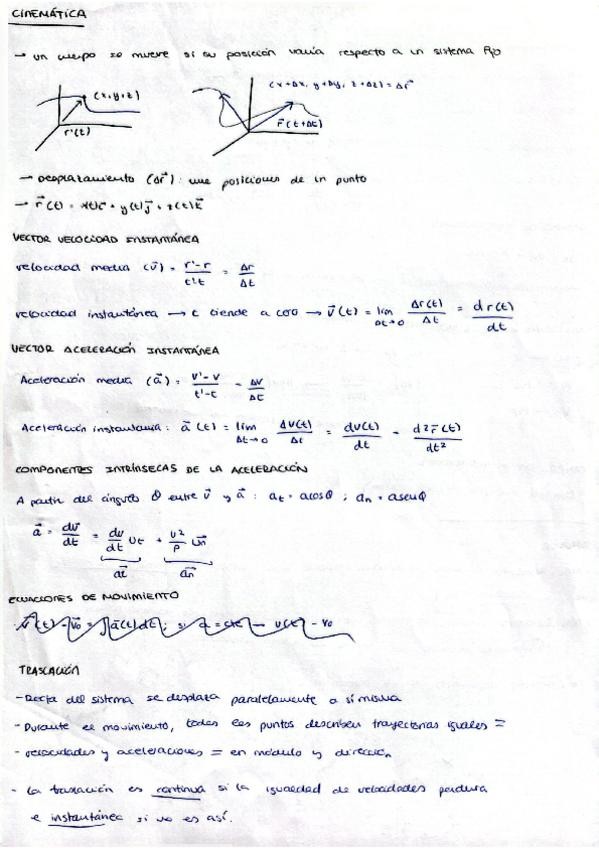 CINEMÁTICA
→ un cuerpo se mueve si su posición varía respecto a un sistema fijo
(x,y,z)
r'(t)
(x+Δx, y+Δy, z+Δz) = Δr⃗
r⃗(t+Δt)
→ Desplazamiento (Δr⃗): une posiciones de un punto
→ r⃗(t) = x(t)i⃗ + y(t)j⃗ + z(t)k⃗
VECTOR VELOCIDAD INSTANTÁNEA
velocidad media (v⃗) = r'-r / t'-t = Δr / Δt
velocidad instantánea → t tiende a cero → v⃗(t) = lim Δt→0 Δr(t) / Δt = dr(t) / dt
VECTOR ACELERACIÓN INSTANTÁNEA
Aceleración media (a⃗) = v'-v / t'-t = Δv / Δt
Aceleración instantánea: a⃗(t) = lim Δt→0 Δv(t) / Δt = dv(t) / dt = d²r⃗(t) / dt²
COMPONENTES INTRÍNSECAS DE LA ACELERACIÓN
A partir del ángulo θ entre v⃗ y a⃗: at = a cosθ ; an = a senθ
a⃗ = dv⃗ / dt = dv / dt ut + v² / ρ un
at⃗ an⃗
ECUACIONES DE MOVIMIENTO
TRASLACIÓN
- Recta del sistema se desplaza paralelamente a sí misma
- Durante el movimiento, todos los puntos describen trayectorias iguales =
- velocidades y aceleraciones = en módulo y dirección
- La traslación es continua si la igualdad de velocidades perdura
e instantánea si no es así.